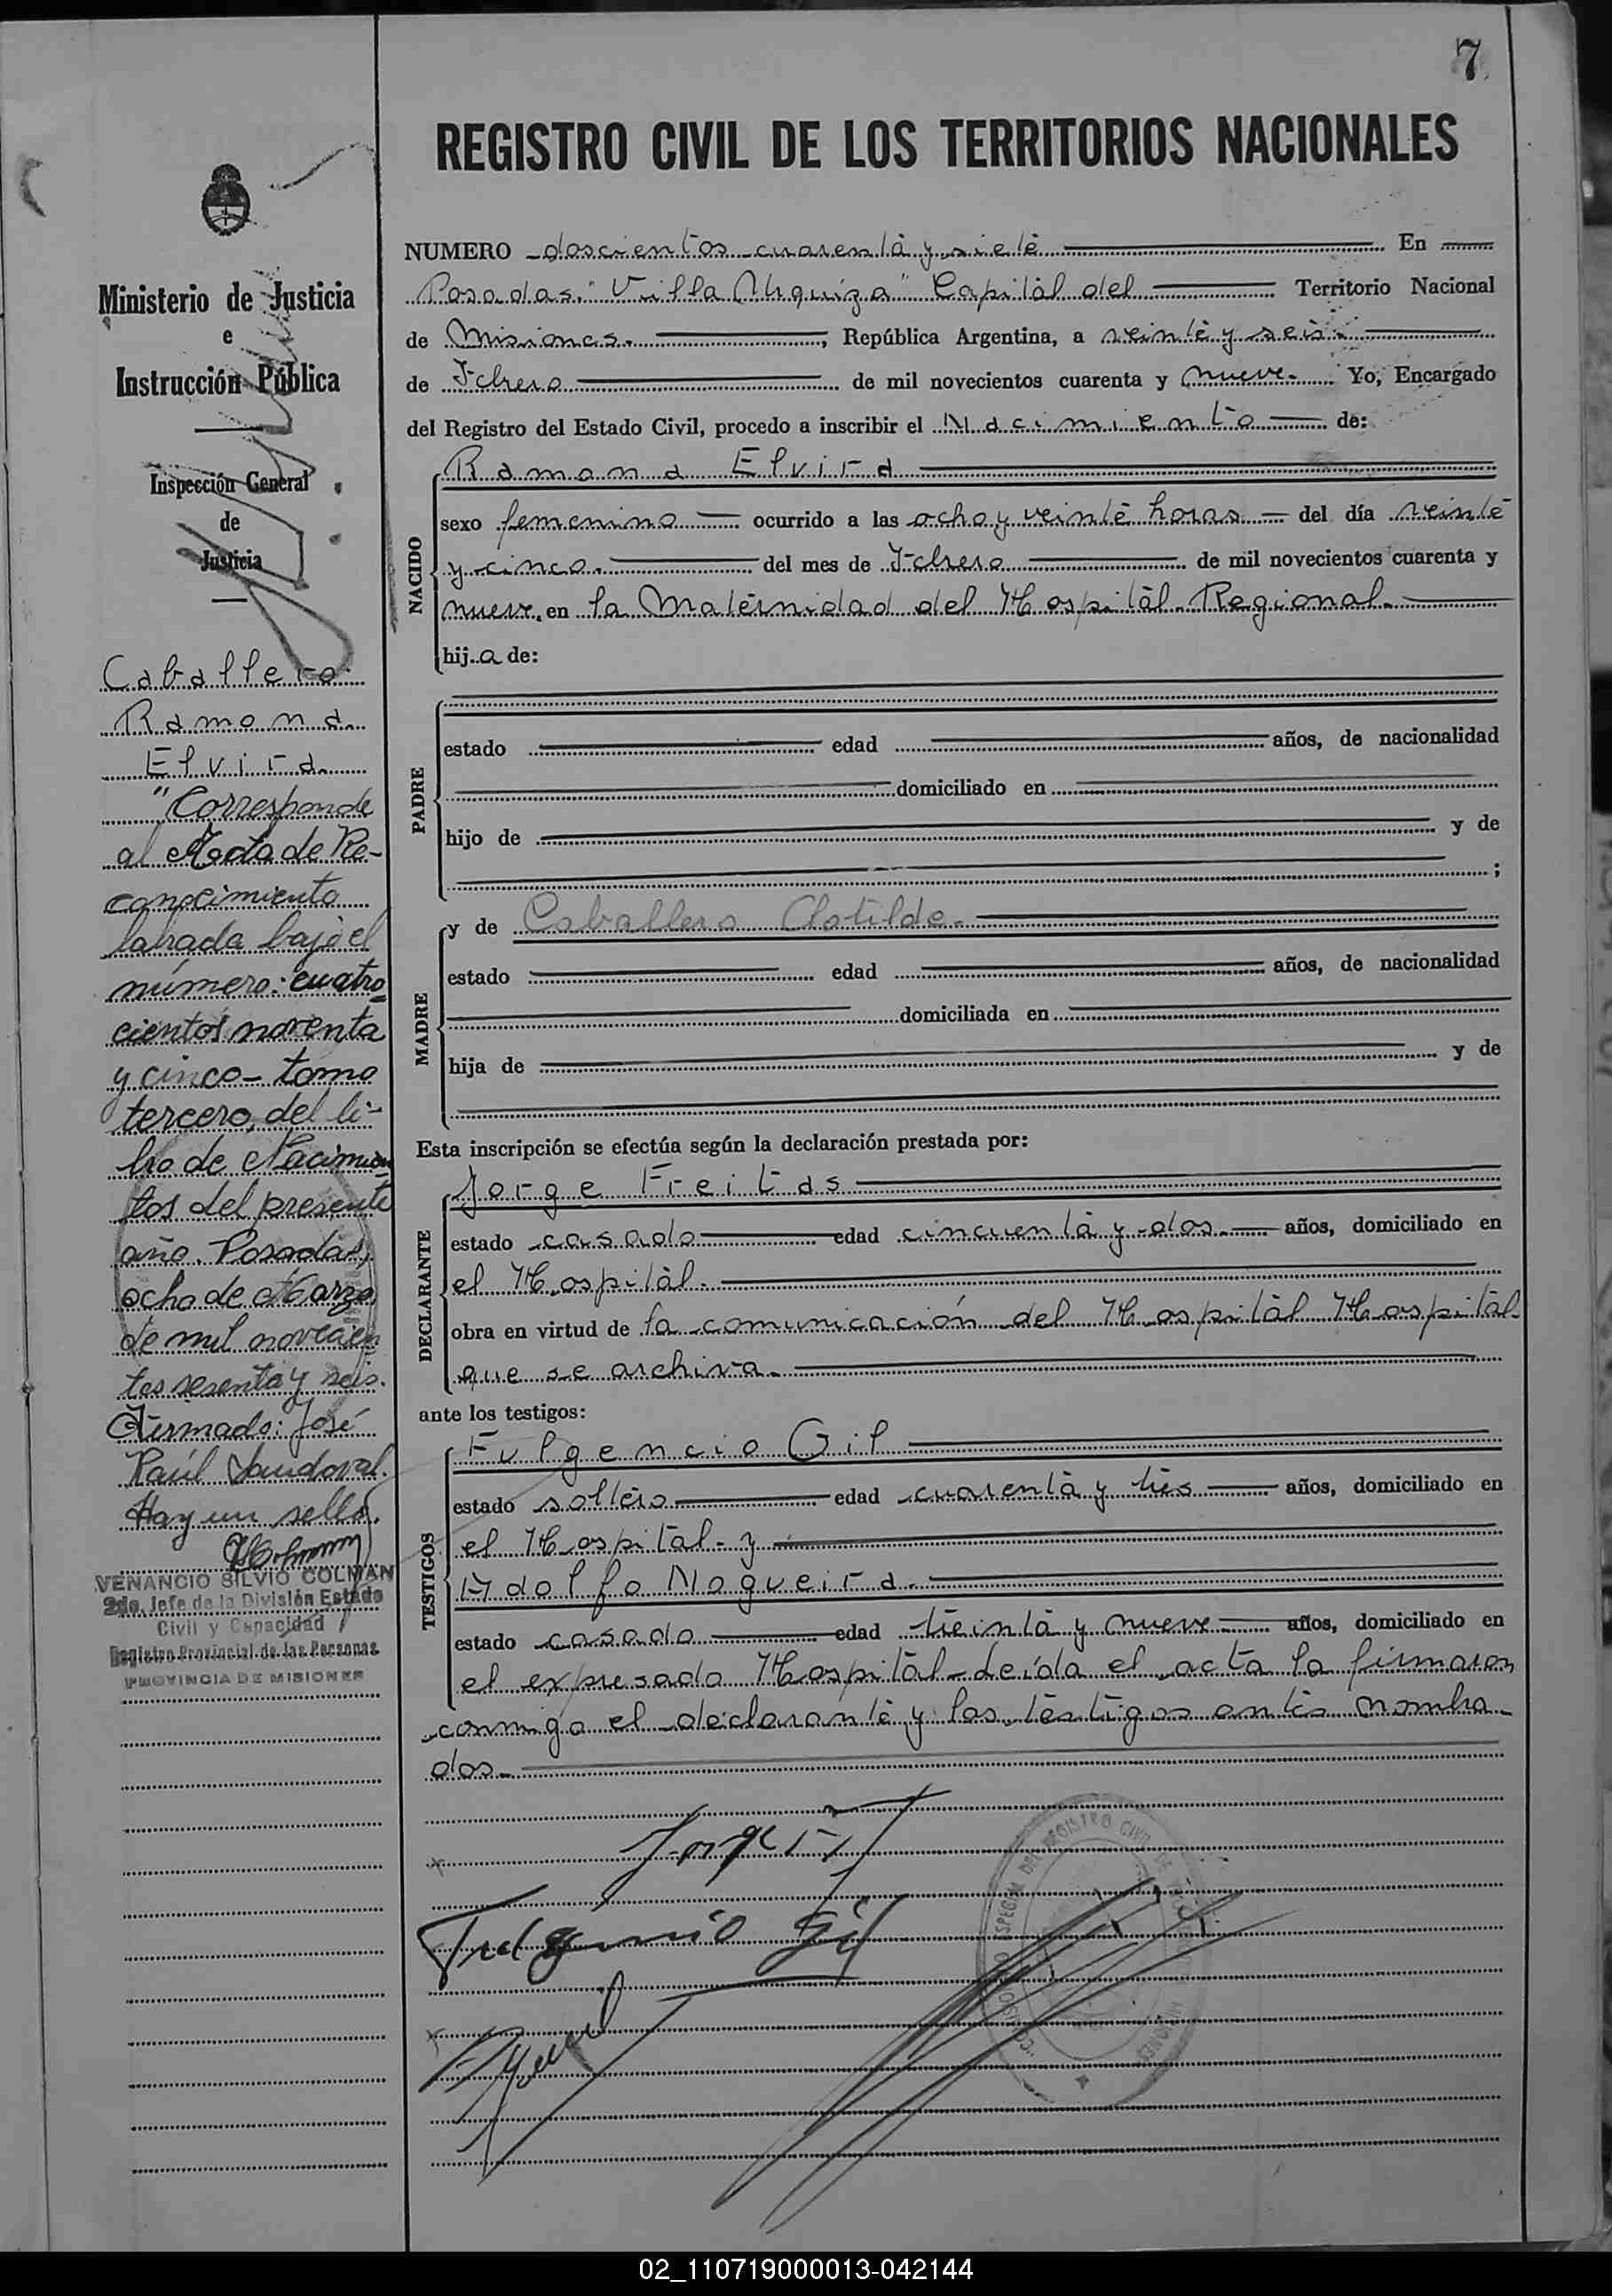 7
REGISTRO CIVIL DE LOS TERRITORIOS NACIONALES
Ministerio de Justicia
e
Instrucción Pública
Inspección General
de
Justicia
Caballero
Ramona
Elvira
"Corresponde
al Acta de Re-
conocimiento
labrada bajo el
número: cuatro-
cientos noventa
y cinco - tomo
tercero, del li-
bro de Nacimien-
tos del presente
año. Posadas,
ocho de Marzo
de mil novecien
tos sesenta y seis.
Firmado: José
Raúl Sandoval.
Hay un sello.
VENANCIO SILVIO COLMAN
2do. Jefe de la División Estado
Civil y Capacidad
Registro Provincial de las Personas
PROVINCIA DE MISIONES
NUMERO doscientos cuarenta y siete En
Posadas. "Villa Urquiza" Capital del Territorio Nacional
de Misiones. , República Argentina, a veinte y seis.
de Febrero de mil novecientos cuarenta y nueve. Yo, Encargado
del Registro del Estado Civil, procedo a inscribir el Nacimiento de:
NACIDO
Ramona Elvira
sexo femenino ocurrido a las ocho y veinte horas del día veinte
y cinco. del mes de Febrero de mil novecientos cuarenta y
nueve. en la Maternidad del Hospital Regional.
hij a de:
PADRE
estado edad años, de nacionalidad
domiciliado en
hijo de y de
;
MADRE
y de Caballero Clotilde.
estado edad años, de nacionalidad
domiciliada en
hija de y de
Esta inscripción se efectúa según la declaración prestada por:
DECLARANTE
Jorge Freitas
estado casado edad cincuenta y dos. años, domiciliado en
el Hospital.
obra en virtud de la comunicación del Hospital Hospital
que se archiva.
ante los testigos:
TESTIGOS
Fulgencio Gil
estado soltero edad cuarenta y tres años, domiciliado en
el Hospital. y
Adolfo Nogueira.
estado casado edad treinta y nueve años, domiciliado en
el expresado Hospital - Leída el acta la firmaron
conmigo el declarante y los testigos antes nombra-
dos.
Fulgencio Gil
02_110719000013-042144